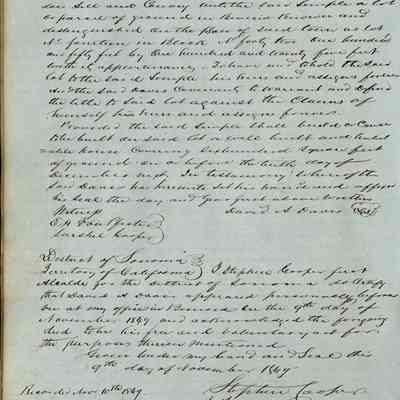 dar Sell and Convey unto the said Semple a lot
or parcel of ground in Benicia Known and
distinguished on the plan of said town as lot
No fourteen in Block No forty two One hundred
and fifty feet by One hundred and twenty five feet
with appurtenances, To have and to hold the said
lot to the said Semple his heirs and assigns forever
And the said Davis Covenants to warrant and defend
the title to said lot against the Claims of
himself his heirs and assigns forever.
Provided the said Semple shall build or Cause
to be built on said lot a well built and habit
=able house Covering hundred Square feet
of ground on or before the tenth day of
December next, In testimony Whereof the
said Davis has hereunto set his hand and affixed
his Seal the day and year first above written
Witness David A Davis Seal
E. H. Von Pfister
Sarshel Cooper
District of Sonoma
Territory of California } I Stephen Cooper first
Alcalde for the district of Sonoma do Certify
that David A Davis appeared personally before
me at my office in Benicia on the 9th day of
November 1849 and acknowledged the foregoing
deed to be his free and voluntary act for
the purposes therein mentioned
Given under my hand and Seal this
9th day of November 1849
Recorded Nov. 10th 1849. Stephen Cooper